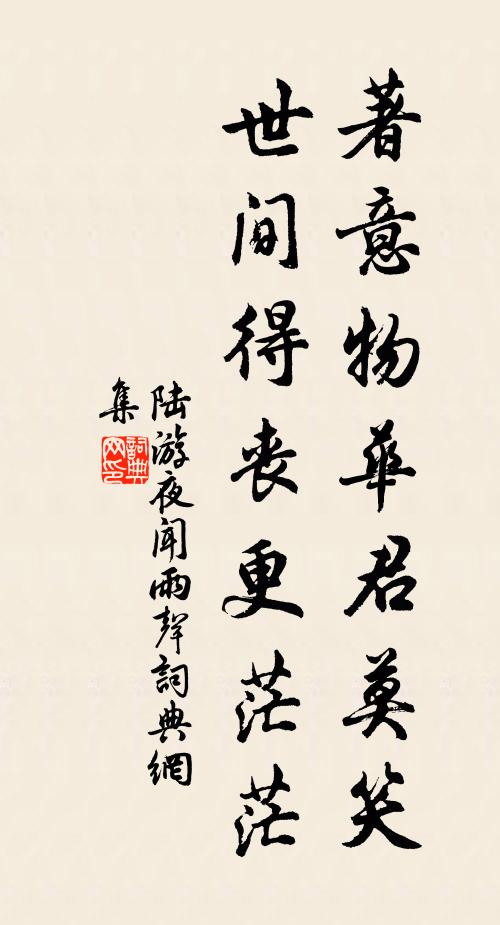 著意物華君莫笑
世間得喪更茫茫
陸游夜聞雨聲詞典網
集
詞典
网印